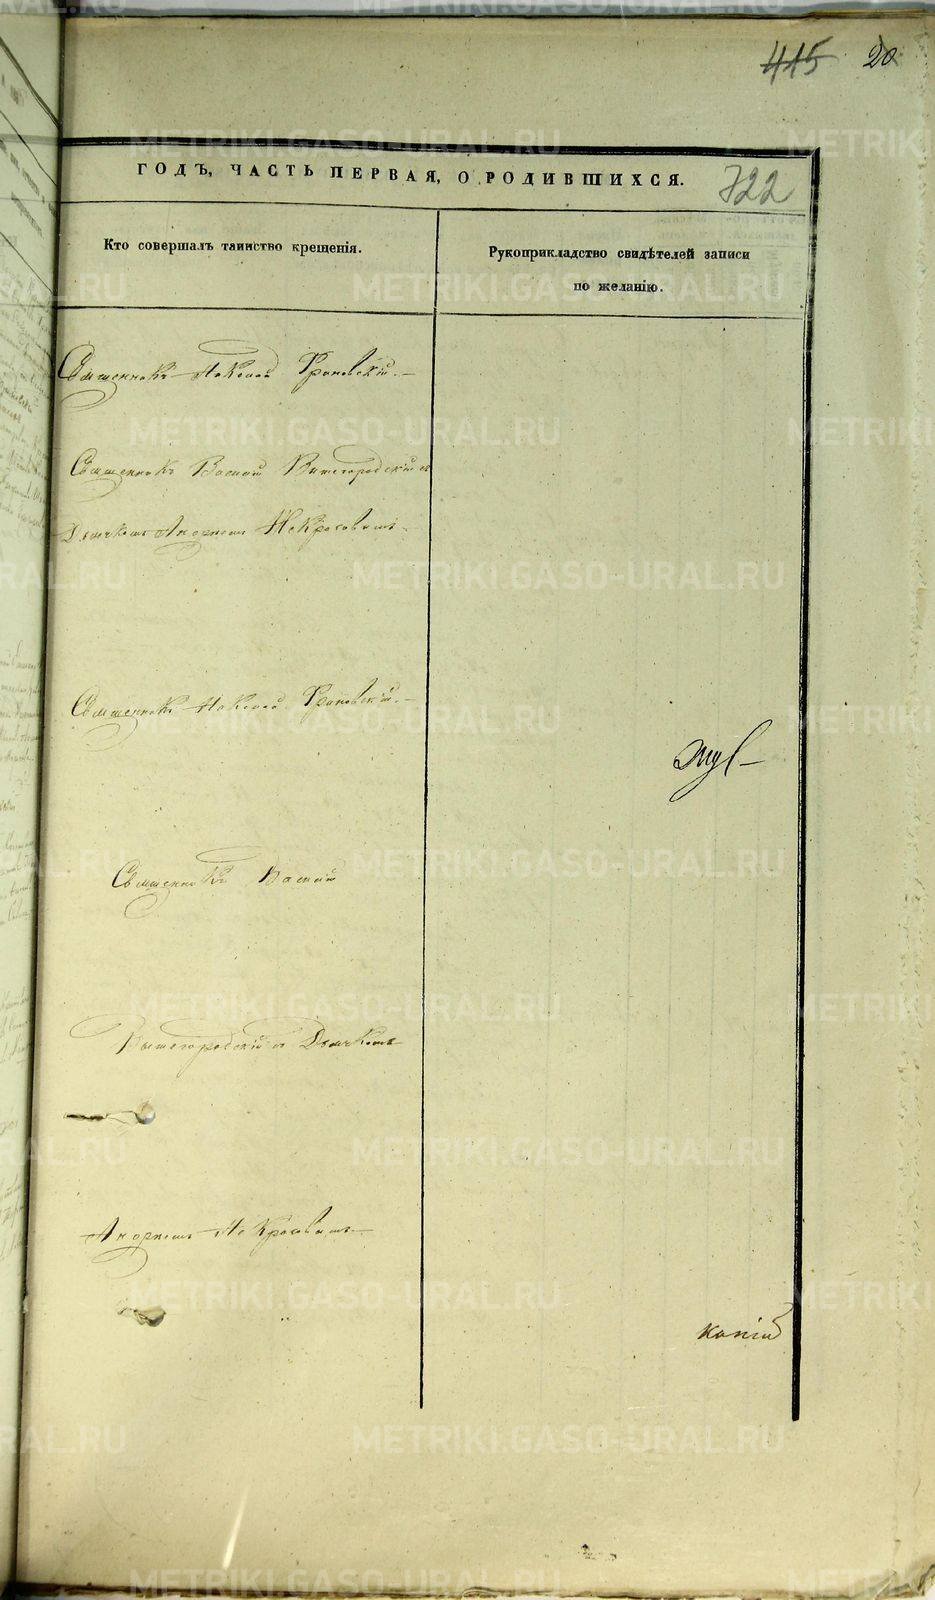 415 20
ГОДЪ, ЧАСТЬ ПЕРВАЯ, О РОДИВШИХСЯ. 722
Кто совершалъ таинство крещенія.
Рукоприкладство свидѣтелей записи
по желанію.
Священникъ Николай Грановскій.
Священникъ Василій Вышегородскій съ
Дьячкомъ Андреемъ Некрасовымъ.
Священникъ Николай Грановскій.
Священникъ Василій
Вышегородскій съ Дьячкомъ
Андреемъ Некрасовымъ
копія
METRIKI.GASO-URAL.RU